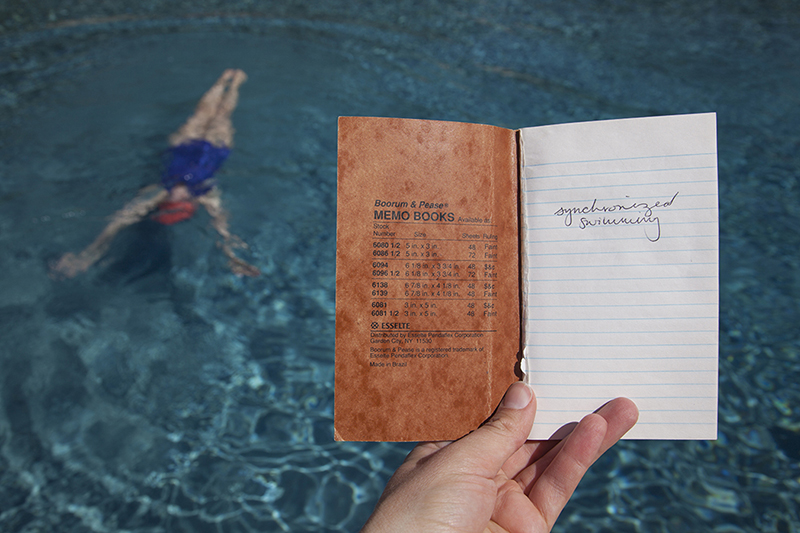 Boorum & Pease®
MEMO BOOKS Available at:
Stock
Number Size Sheets Ruling
6080 1/2 5 in. x 3 in. 48 Faint
6086 1/2 5 in. x 3 in. 72 Faint
6094 6 1/8 in. x 3 3/4 in. 48 S&¢
6096 1/2 6 1/8 in. x 3 3/4 in. 72 Faint
6138 6 7/8 in. x 4 1/8 in. 48 S&¢
6139 6 7/8 in. x 4 1/8 in. 48 Faint
6081 3 in. x 5 in. 48 S&¢
6081 1/2 3 in. x 5 in. 48 Faint
ESSELTE
Distributed by Esselte Pendaflex Corporation
Garden City, NY. 11530
Boorum & Pease is a registered trademark of
Esselte Pendaflex Corporation.
Made in Brazil
synchronized
swimming